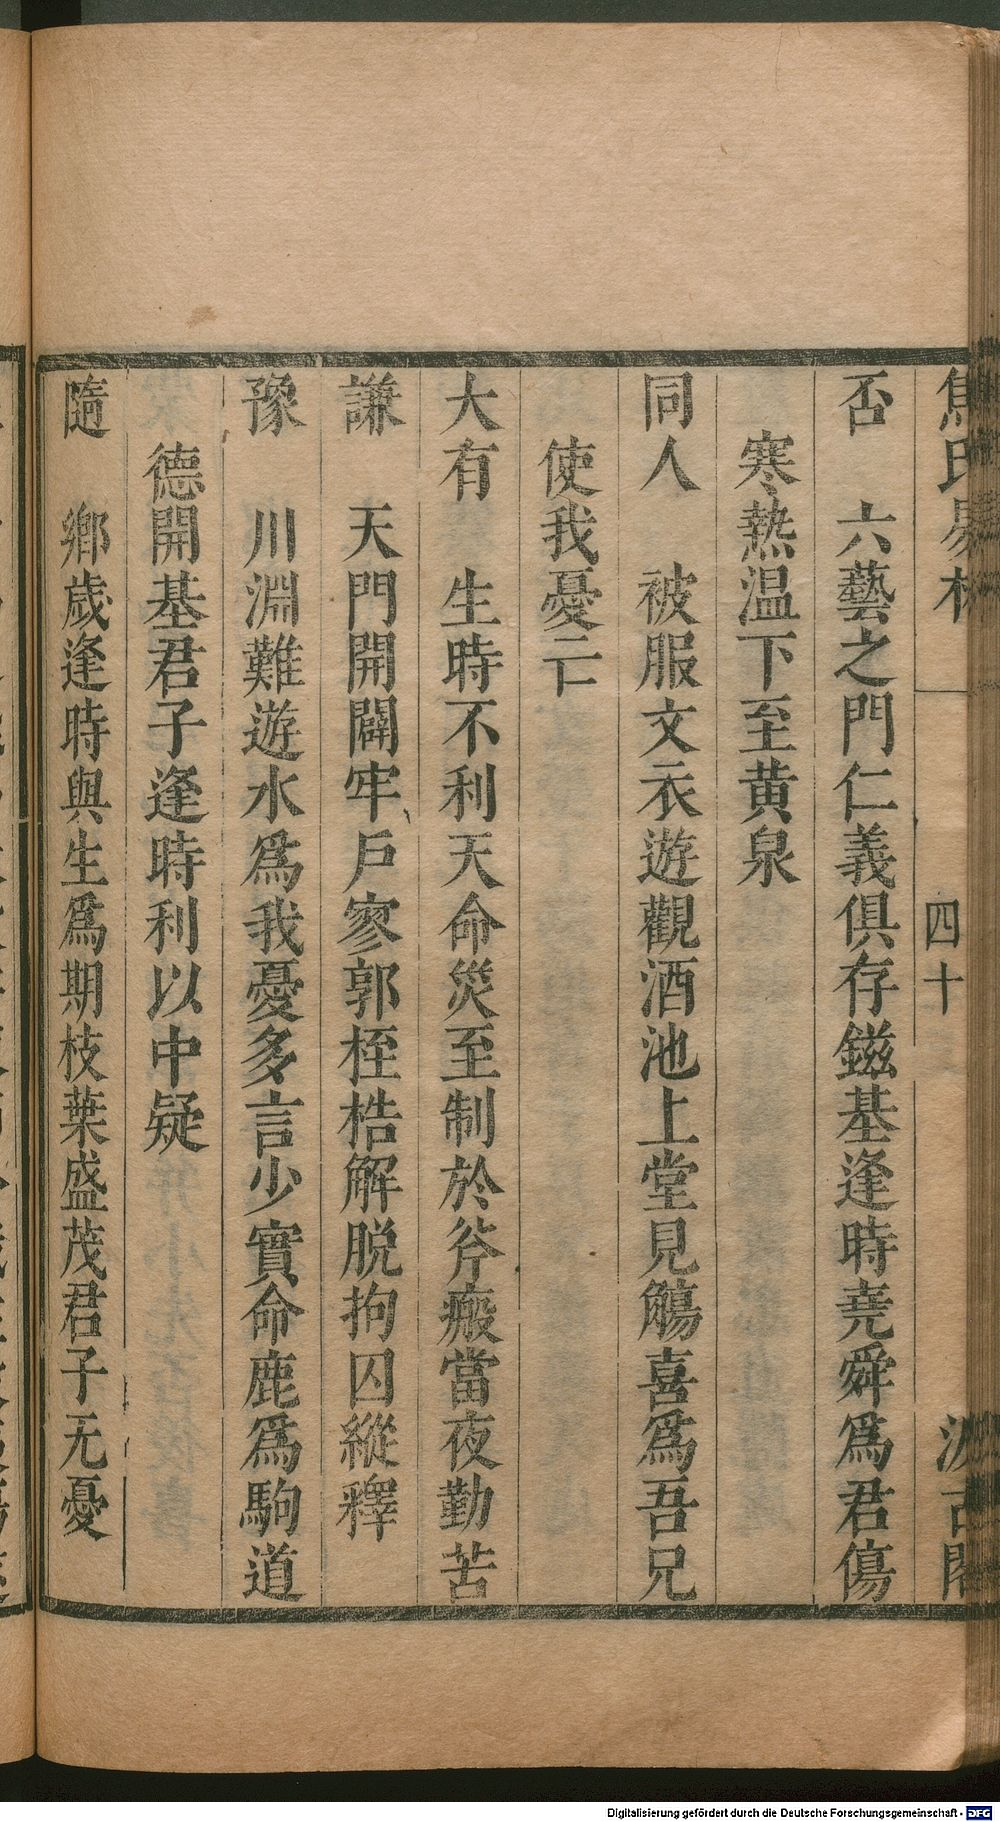 焦氏易林 四十 汲古閣
否 六藝之門仁義俱存鎡基逢時堯舜爲君傷
寒熱温下至黄泉
同人 被服文衣遊觀酒池上堂見觴喜爲吾兄
使我憂亡
大有 生時不利天命災至制於斧瘢當夜勤苦
謙 天門開闢牢戶寥郭桎梏解脱拘囚縱釋
豫 川淵難遊水爲我憂多言少實命鹿爲駒道
德開基君子逢時利以中疑
隨 鄉歲逢時與生爲期枝葉盛茂君子无憂
Digitalisierung gefördert durch die Deutsche Forschungsgemeinschaft - DFG